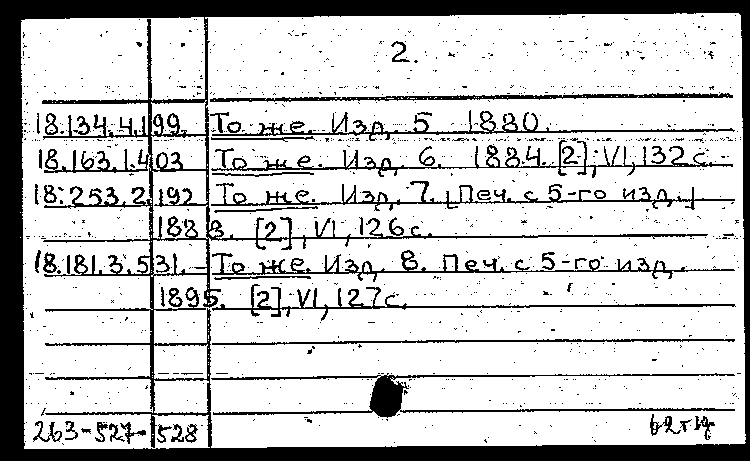 2.
18.134.4.199. То же. Изд. 5 1880.
18.163.1.403 То же. Изд. 6. 1884. [2], VI, 132 с.
18.253.2.192 То же. Изд. 7. [Печ. с 5-го изд.]
1888. [2], VI, 126 с.
18.181.3.531. – То же. Изд. 8. Печ. с 5-го изд.
1895. [2], VI, 127 с.
263-527-528